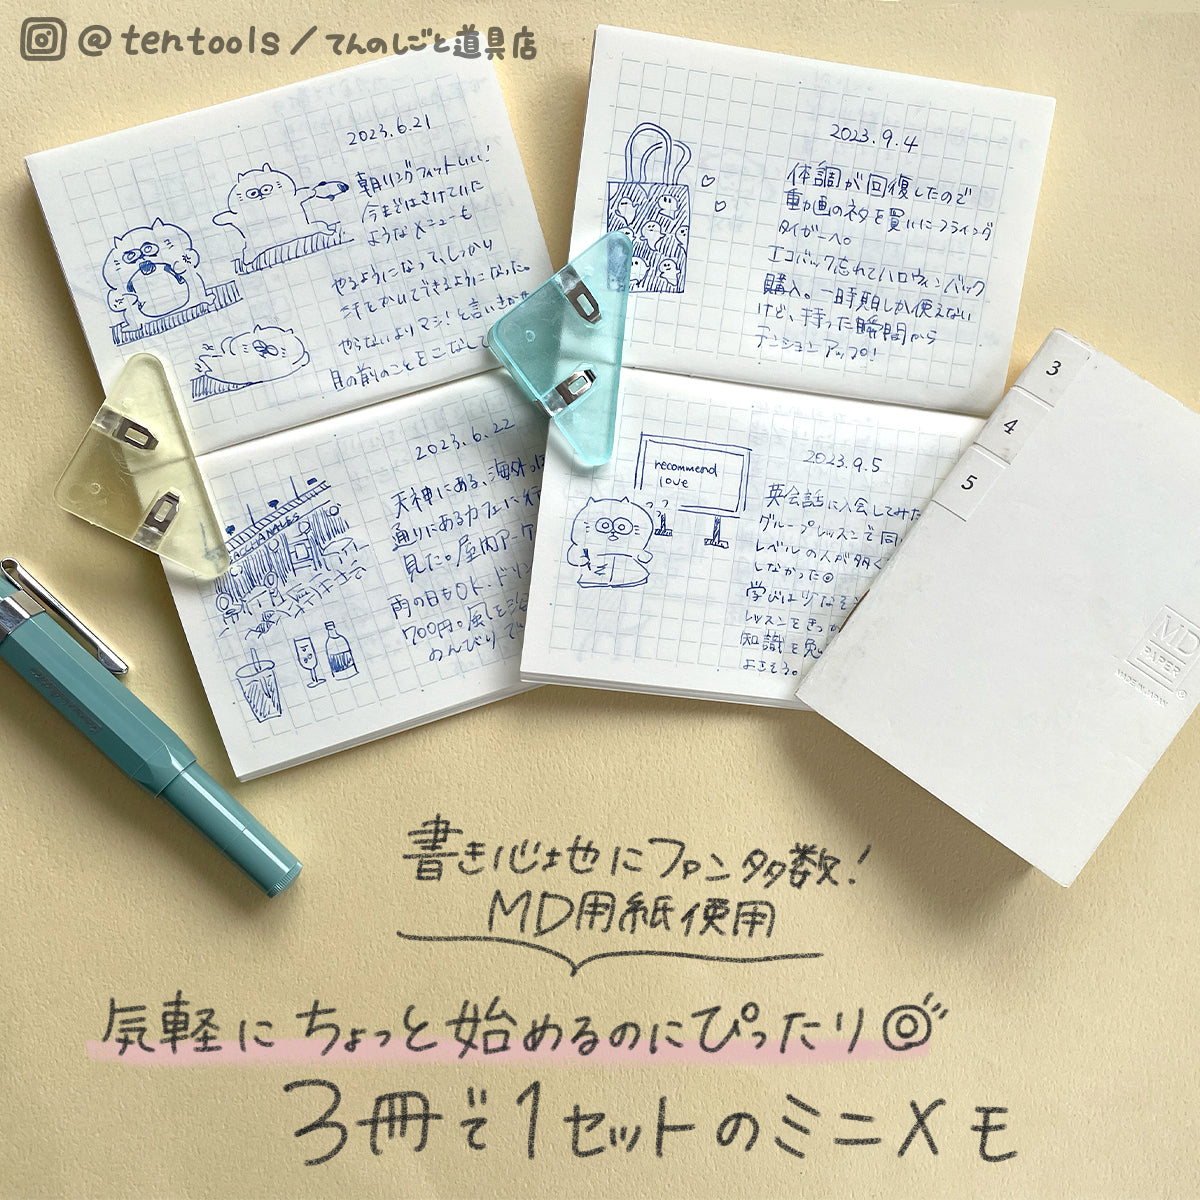 @tentools/てんのしごと道具店
2023.6.21
朝リングフィットいい!
今まではさけていた
ようなメニューも
やるようになって、しっかり
汗をかいてできるようになった。
やらないよりマシ!と言いきかせ
目の前のことをこなして
2023.6.22
天神にある、海外っぽ
通りにあるカフェに行
見た。屋内アーケ
雨の日もOK。ドリン
700円。風を
のんびり
ACCHANALES
2023.9.4
体調が回復したので
動画のネタを買いにフライング
タイガーへ。
エコバック忘れてハロウィンバック
購入。一時期しか使えない
けど、持った瞬間から
テンションアップ!
2023.9.5
recommend
love
英会話に入会してみた
グループレッスンで同
レベルの人が多く
しなかった◎
学びは少なそう
レッスンをきっか
知識を
よさそう。
3
4
5
MD
PAPER
®
MADE IN JAPAN
書き心地にファン多数!
MD用紙使用
気軽にちょっと始めるのにぴったり◎
3冊で1セットのミニメモ